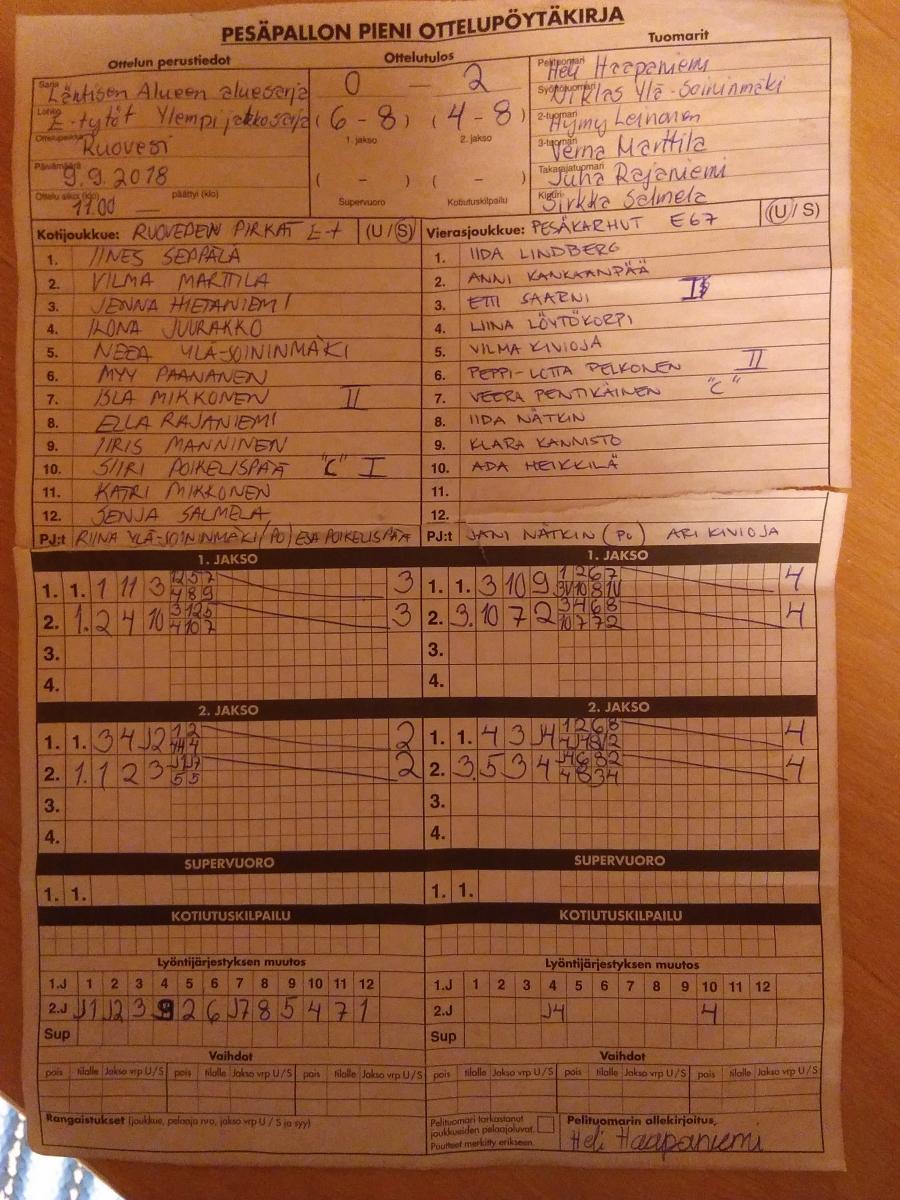 PESÄPALLON PIENI OTTELUPÖYTÄKIRJA
Ottelun perustiedot
Ottelutulos
Tuomarit
Sarja Läntisen Alueen aluesarja
Lohko E-tytöt Ylempi jatkosarja
Ottelupaikka Ruovesi
Päivämäärä 9.9.2018
Ottelu alkoi (klo) 11.00 — päättyi (klo)
0 — 2
(6 - 8) (4 - 8)
1. jakso 2. jakso
( - ) ( - )
Supervuoro Kotiutuskilpailu
Pelituomari Heli Haapaniemi
Syöttötuomari Niklas Ylä-Soininmäki
2-tuomari Hymy Leinonen
3-tuomari Verna Marttila
Takarajatuomari Juha Rajaniemi
Kirjuri Sirkka Salmela
Kotijoukkue: RUOVEDEN PIRKAT E-t (U/S)
1. IINES SEPPÄLÄ
2. VILMA MARTTILA
3. JENNA HIETANIEMI
4. ILONA JUURAKKO
5. NEEA YLÄ-SOININMÄKI
6. MYY PAANANEN
7. ISLA MIKKONEN II
8. ELLA RAJANIEMI
9. IIRIS MANNINEN
10. SIIRI POIKELISPÄÄ "C" I
11. KATRI MIKKONEN
12. SENJA SALMELA
PJ:t RIINA YLÄ-SOININMÄKI (PO) ESA POIKELISPÄÄ
Vierasjoukkue: PESÄKARHUT E67 (U/S)
1. IIDA LINDBERG
2. ANNI KANKAANPÄÄ
3. ETTI SAARNI
4. LIINA LÖYTÖKORPI
5. VILMA KIVIOJA
6. PEPPI-LOTTA PELKONEN II
7. VEERA PENTIKÄINEN "C"
8. IIDA NÄTKIN
9. KLARA KANNISTO
10. ADA HEIKKILÄ
11.
12.
PJ:t JANI NÄTKIN (PO) ARI KIVIOJA
1. JAKSO
1. 1. 1 11 3 1 2 5 7 3
4 8 9
2. 1. 2 4 10 3 1 2 5 3
4 10 7
3.
4.
1. JAKSO
1. 1. 3 10 9 1 2 6 7 4
2. 3. 10 7 2 3 4 6 8 4
10 7 7 2
3.
4.
2. JAKSO
1. 1. 3 4 J2 1 2 2
2. 1. 1 2 3 2
5 5
3.
4.
2. JAKSO
1. 1. 4 3 J4 1 2 6 8 4
2. 3. 5 3 4 J4 6 8 2 4
4 8 3 4
3.
4.
SUPERVUORO
1. 1.
SUPERVUORO
1. 1.
KOTIUTUSKILPAILU
KOTIUTUSKILPAILU
Lyöntijärjestyksen muutos
1.J 1 2 3 4 5 6 7 8 9 10 11 12
2.J J1 J2 3 9 2 6 J7 8 5 4 7 1
Sup
Lyöntijärjestyksen muutos
1.J 1 2 3 4 5 6 7 8 9 10 11 12
2.J J4 4
Sup
Vaihdot
pois tilalle Jakso vrp U/S pois tilalle Jakso vrp U/S pois tilalle Jakso vrp U/S
Vaihdot
pois tilalle Jakso vrp U/S pois tilalle Jakso vrp U/S pois tilalle Jakso vrp U/S
Rangaistukset (joukkue, pelaaja nro, jakso vrp U / S ja syy)
Pelituomari tarkastanut
joukkueiden pelaajaluvat.
Puutteet merkitty erikseen.
Pelituomarin allekirjoitus,
Heli Haapaniemi